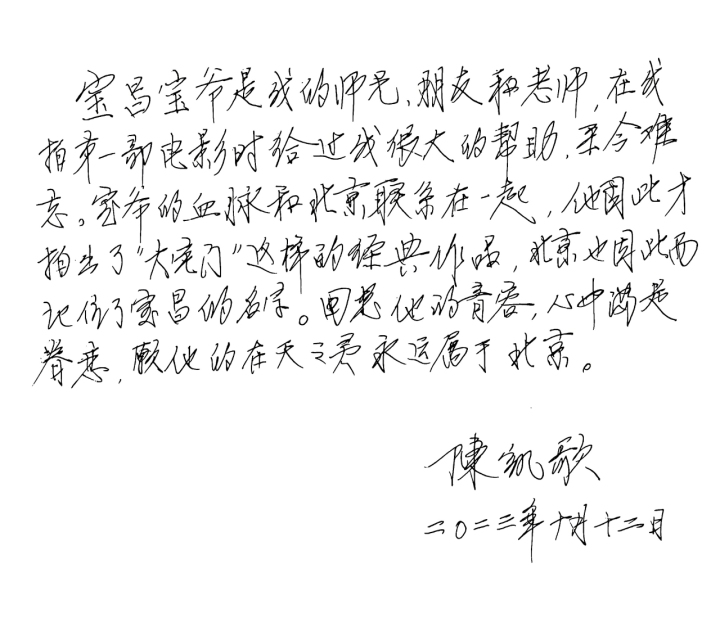 宝昌宝爷是我的师兄、朋友和老师,在我
拍第一部电影时给过我很大的帮助,至今难
忘。宝爷的血脉和北京联系在一起,他因此才
拍出了“大宅门”这样的经典作品,北京也因此而
记住了宝昌的名字。回想他的音容,心中满是
眷恋,愿他的在天之灵永远属于北京。
陳凯歌
二〇二三年十月十二日